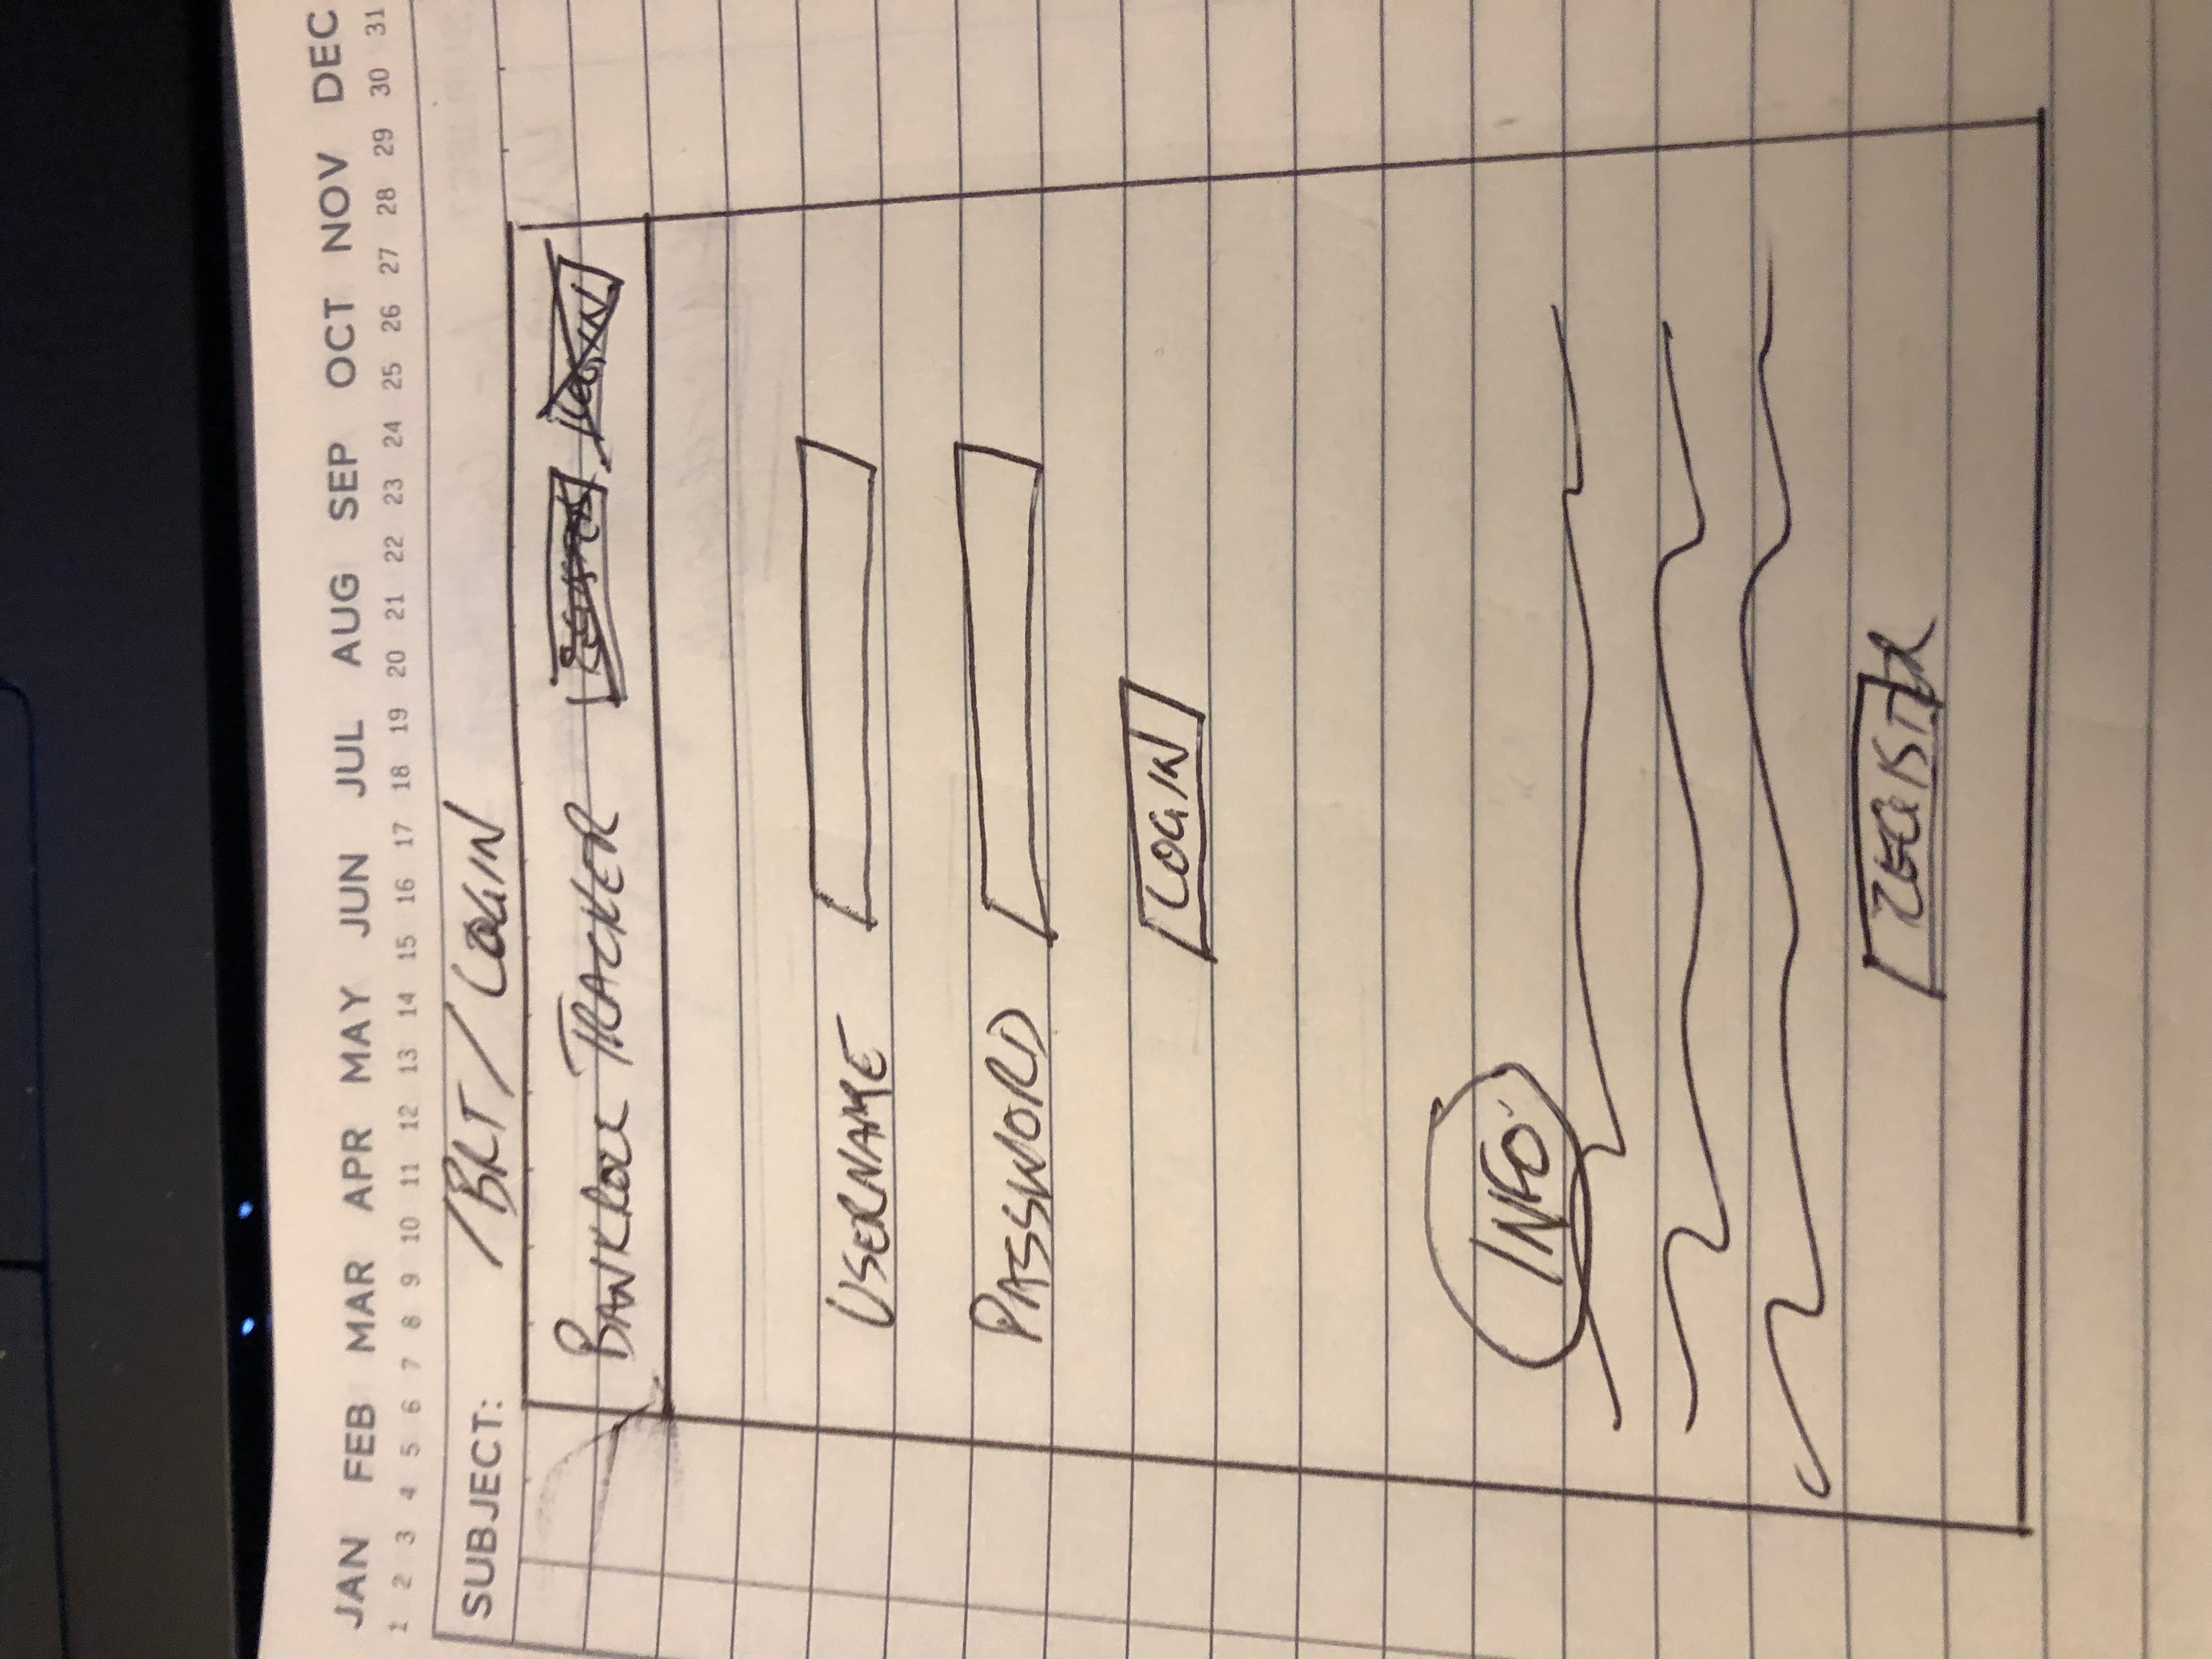 JAN FEB MAR APR MAY JUN JUL AUG SEP OCT NOV DEC
1 2 3 4 5 6 7 8 9 10 11 12 13 14 15 16 17 18 19 20 21 22 23 24 25 26 27 28 29 30 31
SUBJECT: /BRT/LOGIN
BANKROLL TRACKER REGISTER LOGIN
USERNAME
PASSWORD
LOGIN
INFO
REGISTER